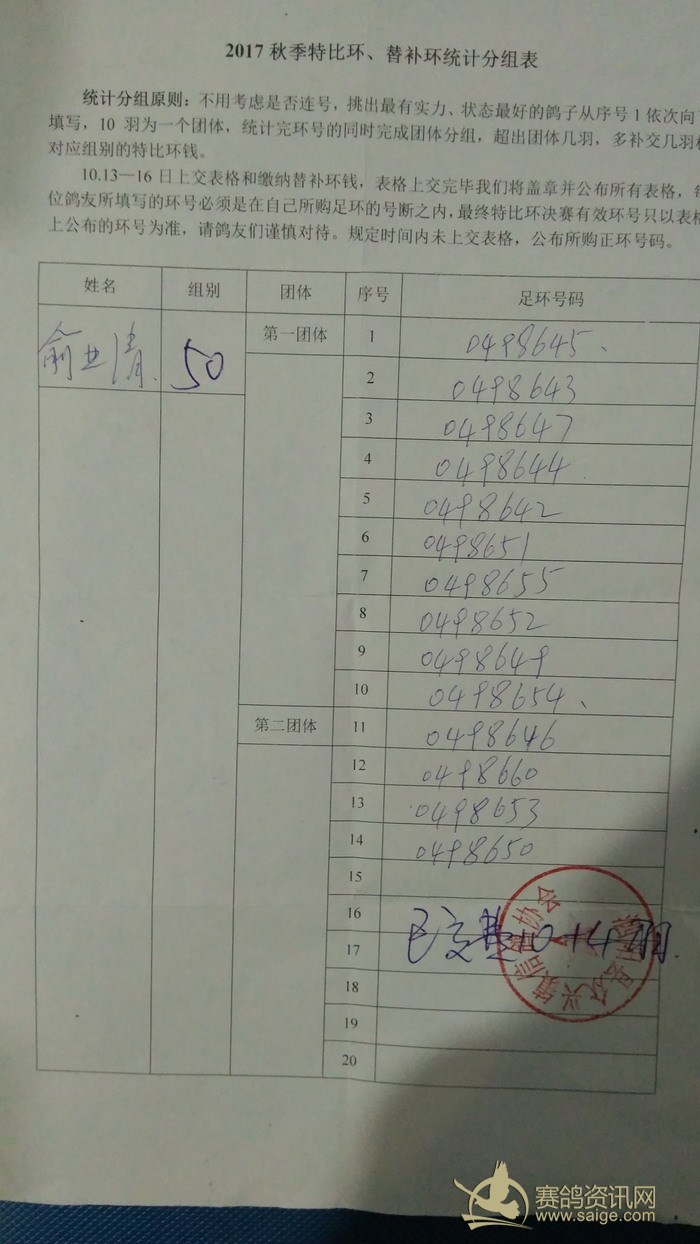 2017 秋季特比环、替补环统计分组表
统计分组原则：不用考虑是否连号，挑出最有实力、状态最好的鸽子从序号 1 依次向下
填写，10 羽为一个团体，统计完环号的同时完成团体分组，超出团体几羽，多补交几羽
对应组别的特比环钱。
10.13—16 日上交表格和缴纳替补环钱，表格上交完毕我们将盖章并公布所有表格，每
位鸽友所填写的环号必须是在自己所购足环的号断之内，最终特比环决赛有效环号只以表格
上公布的环号为准，请鸽友们谨慎对待。规定时间内未上交表格，公布所购正环号码。
姓名 组别 团体 序号 足环号码
俞业清 50 第一团体 1 0498645、
2 0498643
3 0498647
4 0498644
5 0498642
6 0498651
7 0498655
8 0498652
9 0498649
10 0498654、
第二团体 11 0498646
12 0498660
13 0498653
14 0498650
15
16
17 已交 10+4羽.
18
19
20
县众兴镇信鸽协会
赛鸽资讯网
www.saige.com